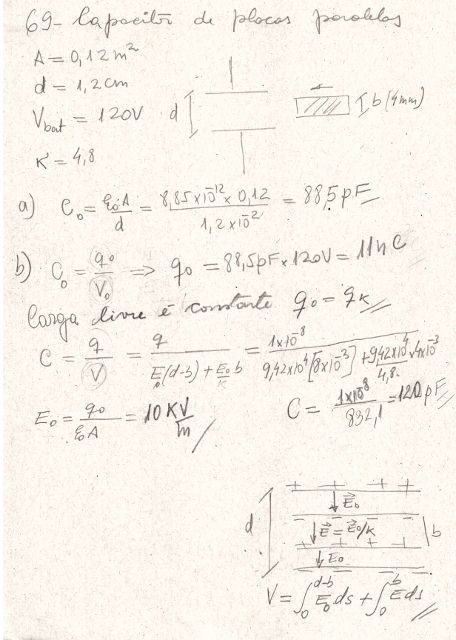 69- Capacitor de placas paralelas
A = 0,12 m²
d = 1,2 cm
V_bat = 120V
K = 4,8
d
b (4mm)
a) C₀ = ε₀A/d = 8,85x10⁻¹² x 0,12 / 1,2x10⁻² = 88,5 pF
b) C₀ = q₀/V₀ ⟹ q₀ = 88,5pF x 120V = 11nC
Carga livre é constante q₀ = q_K
C = q/V = q / E₀(d-b) + E₀/K b = 1x10⁻⁸ / 9,42x10⁴[8x10⁻³] + 9,42x10⁴/4,8 . 4x10⁻³
E₀ = q₀/ε₀A = 10 KV/m
C = 1x10⁻⁸ / 832,1 = 120 pF
+ + + +
E⃗₀
d
E⃗ = E⃗₀/K
b
E₀
V = ∫₀^(d-b) E₀ ds + ∫₀^b E ds